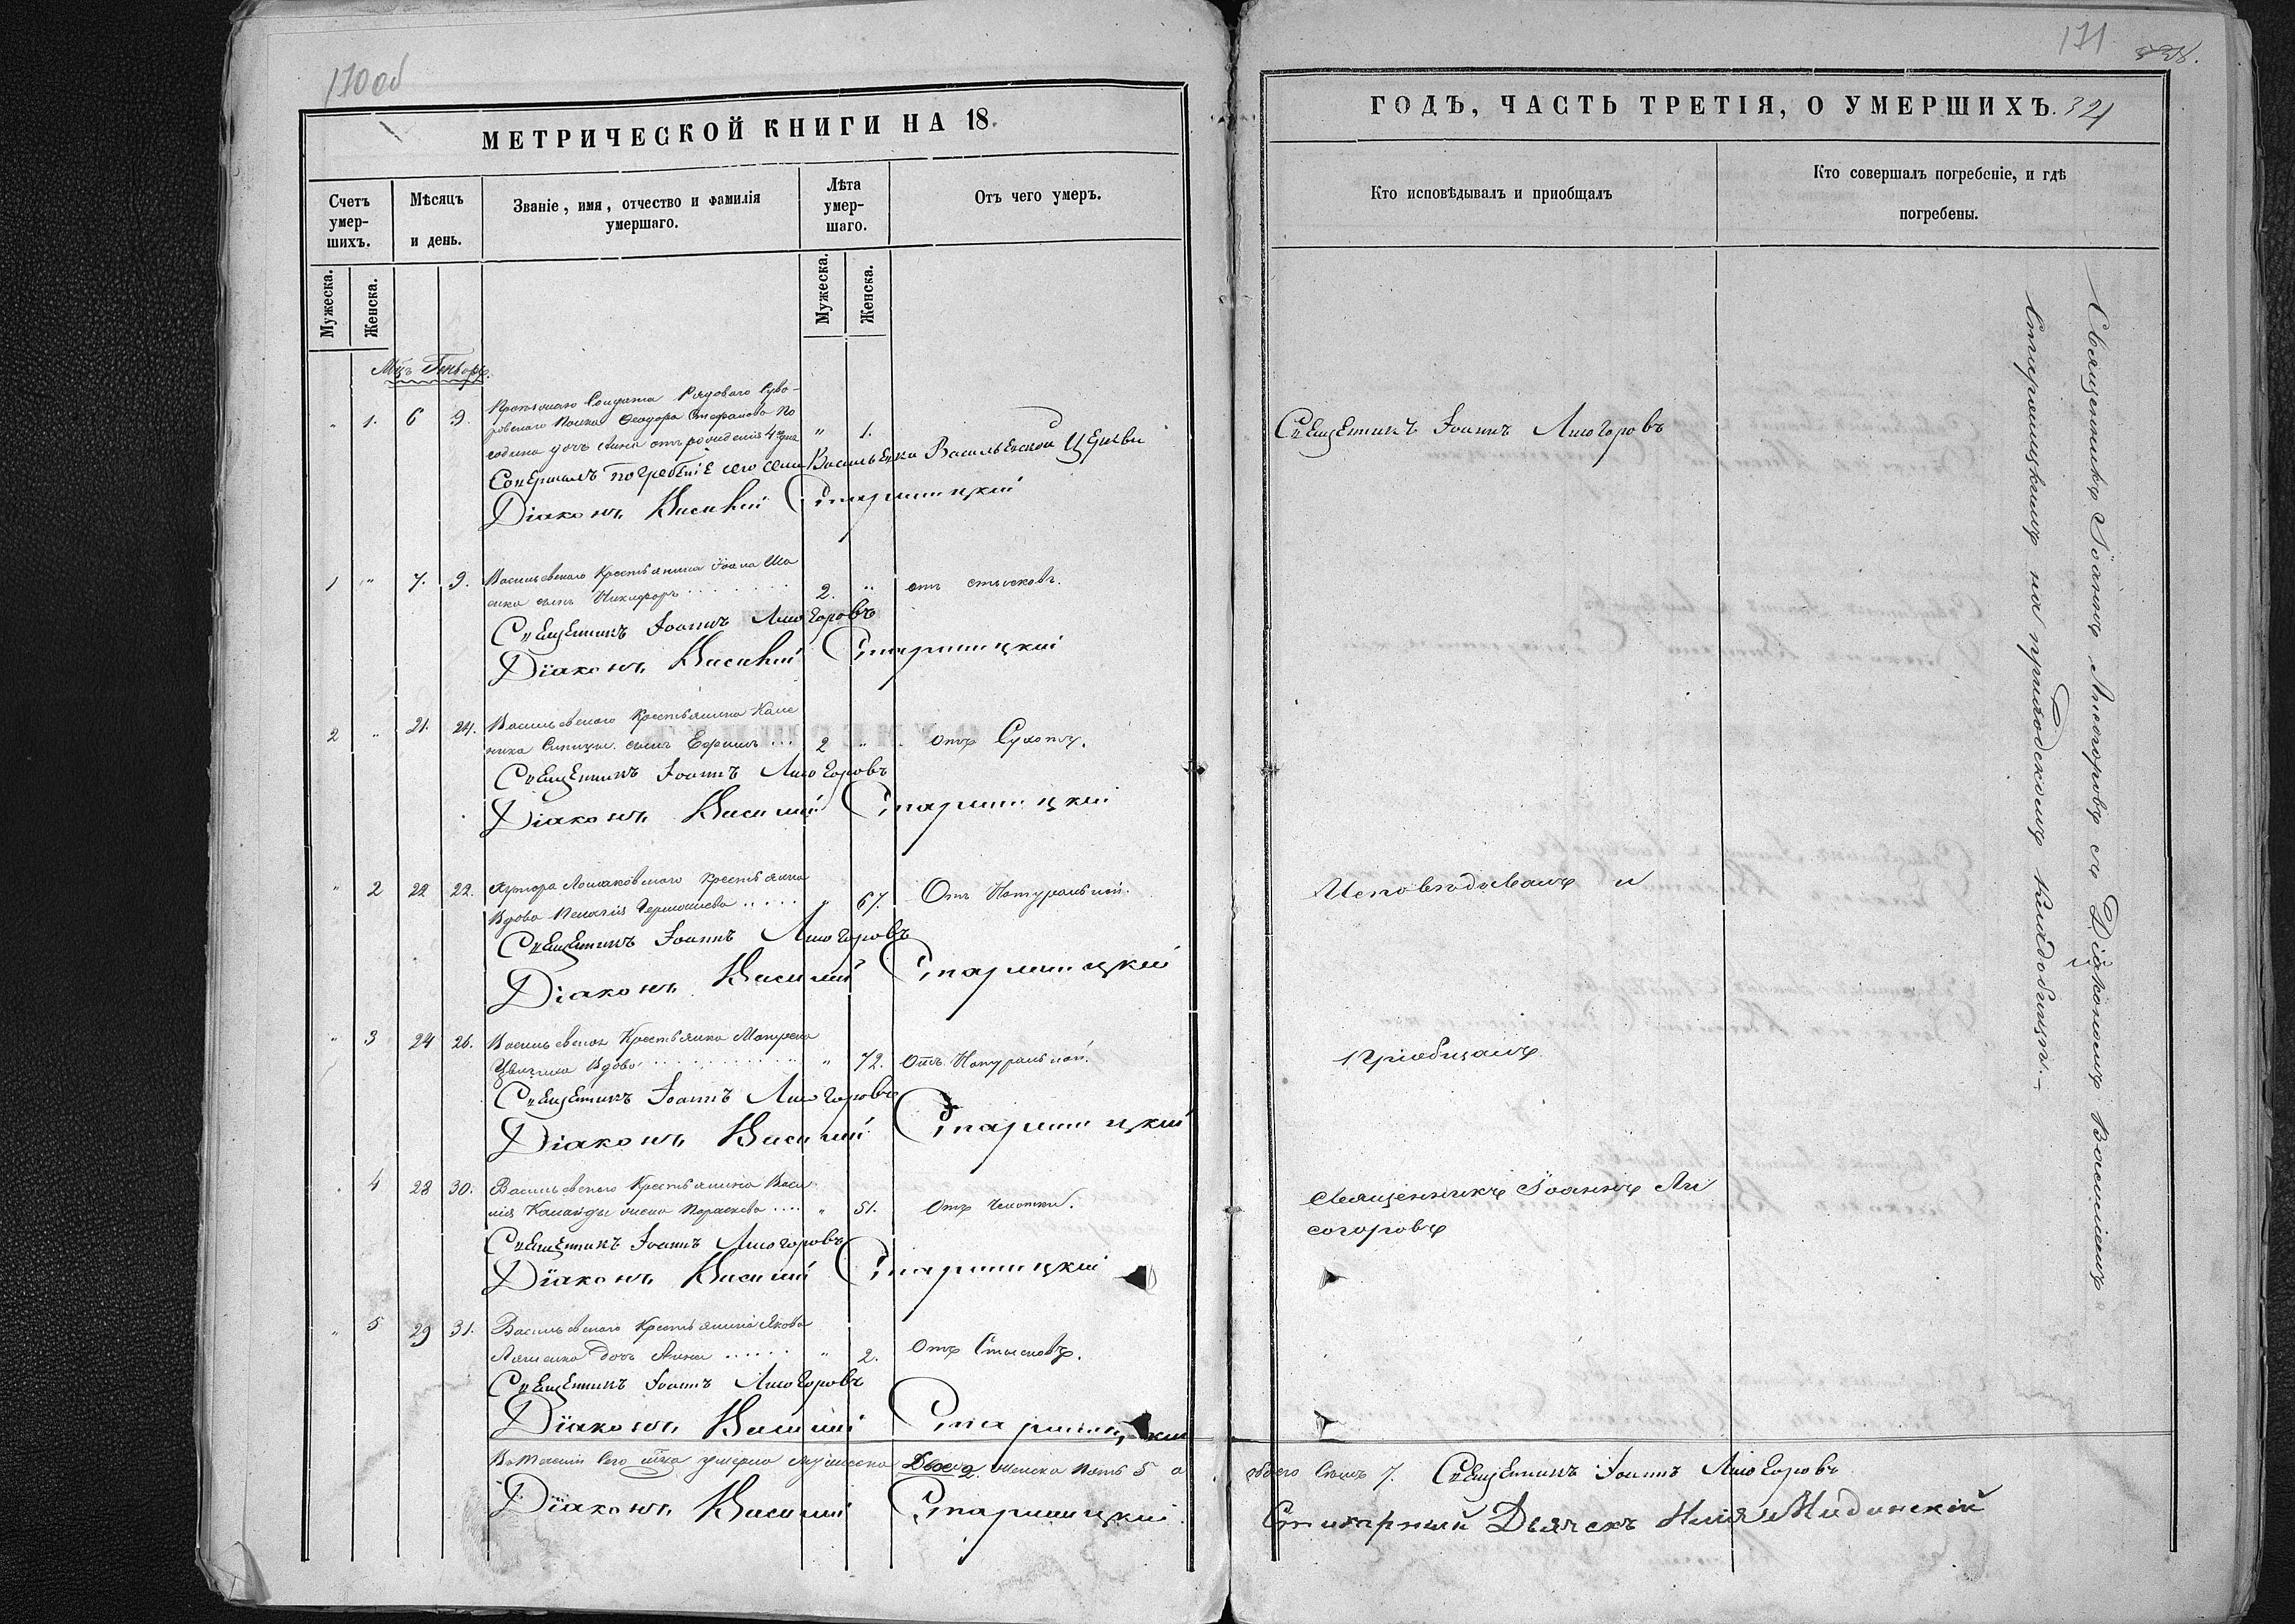 170 об
МЕТРИЧЕСКОЙ КНИГИ НА 18
Счетъ умер-шихъ.
Мѣсяцъ и день.
Званіе, имя, отчество и фамилія умершаго.
Лѣта умер-шаго.
Отъ чего умеръ.
Мужеска.
Женска.
Мужеска.
Женска.
Мцъ Генварь.
" 1. 6 9.
ровскаго Полка Феодора Стефанова
дочь Анна отъ рожденія " 1.
Совершалъ погребеніе сего села Васильевки Васильевской Церкви
Діаконъ Василій Старицкій
1 " 7. 9. Васильевскаго Крестьянина Іоана
сынъ Никифоръ 2. " отъ стисковъ.
Священникъ Іоаннъ Лисогоровъ
Діаконъ Василій Старицкій
2 " 21. 24. Васильевскаго Крестьянина
сынъ Ефимъ 2 " Отъ Сухоты.
Священникъ Іоаннъ Лисогоровъ
Діаконъ Василій Старицкій
" 2 22 22. Хутора Лошаковскаго Крестьянка
Вдова Пелагія " 67. Отъ Натуральной.
Священникъ Іоаннъ Лисогоровъ
Діаконъ Василій Старицкій
" 3 24 26. Васильевская Крестьянка Матрена
Вдова " 72. Отъ Натуральной.
Священникъ Іоаннъ Лисогоровъ
Діаконъ Василій Старицкій
4 28 30. Васильевскаго Крестьянина Васи
лія жена Параскева " 51. Отъ Чахотки.
Священникъ Іоаннъ Лисогоровъ
Діаконъ Василій Старицкій
" 5 29 31. Васильевскаго Крестьянина Якова
Ляшенка дочь Анна " 2. Отъ Стисковъ.
Священникъ Іоаннъ Лисогоровъ
Діаконъ Василій Старицкій
Въ теченіи сего мца умерло мужеска Двое 2. женска пять 5 а
Діаконъ Василій Старицкій
171
ГОДЪ, ЧАСТЬ ТРЕТІЯ, О УМЕРШИХЪ. 321
Кто исповѣдывалъ и приобщалъ
Кто совершалъ погребеніе, и гдѣ погребены.
Священникъ Іоаннъ Лисогоровъ
Исповѣдывалъ и
приобщалъ
Священникъ Іоаннъ Ли
согоровъ
Священникъ Іоаннъ Лисогоровъ съ Діакономъ Василіемъ
Старицкимъ на приходскомъ кладбищѣ.
обоего Семь 7. Священникъ Іоаннъ Лисогоровъ
Стихарный Дьячекъ Илія